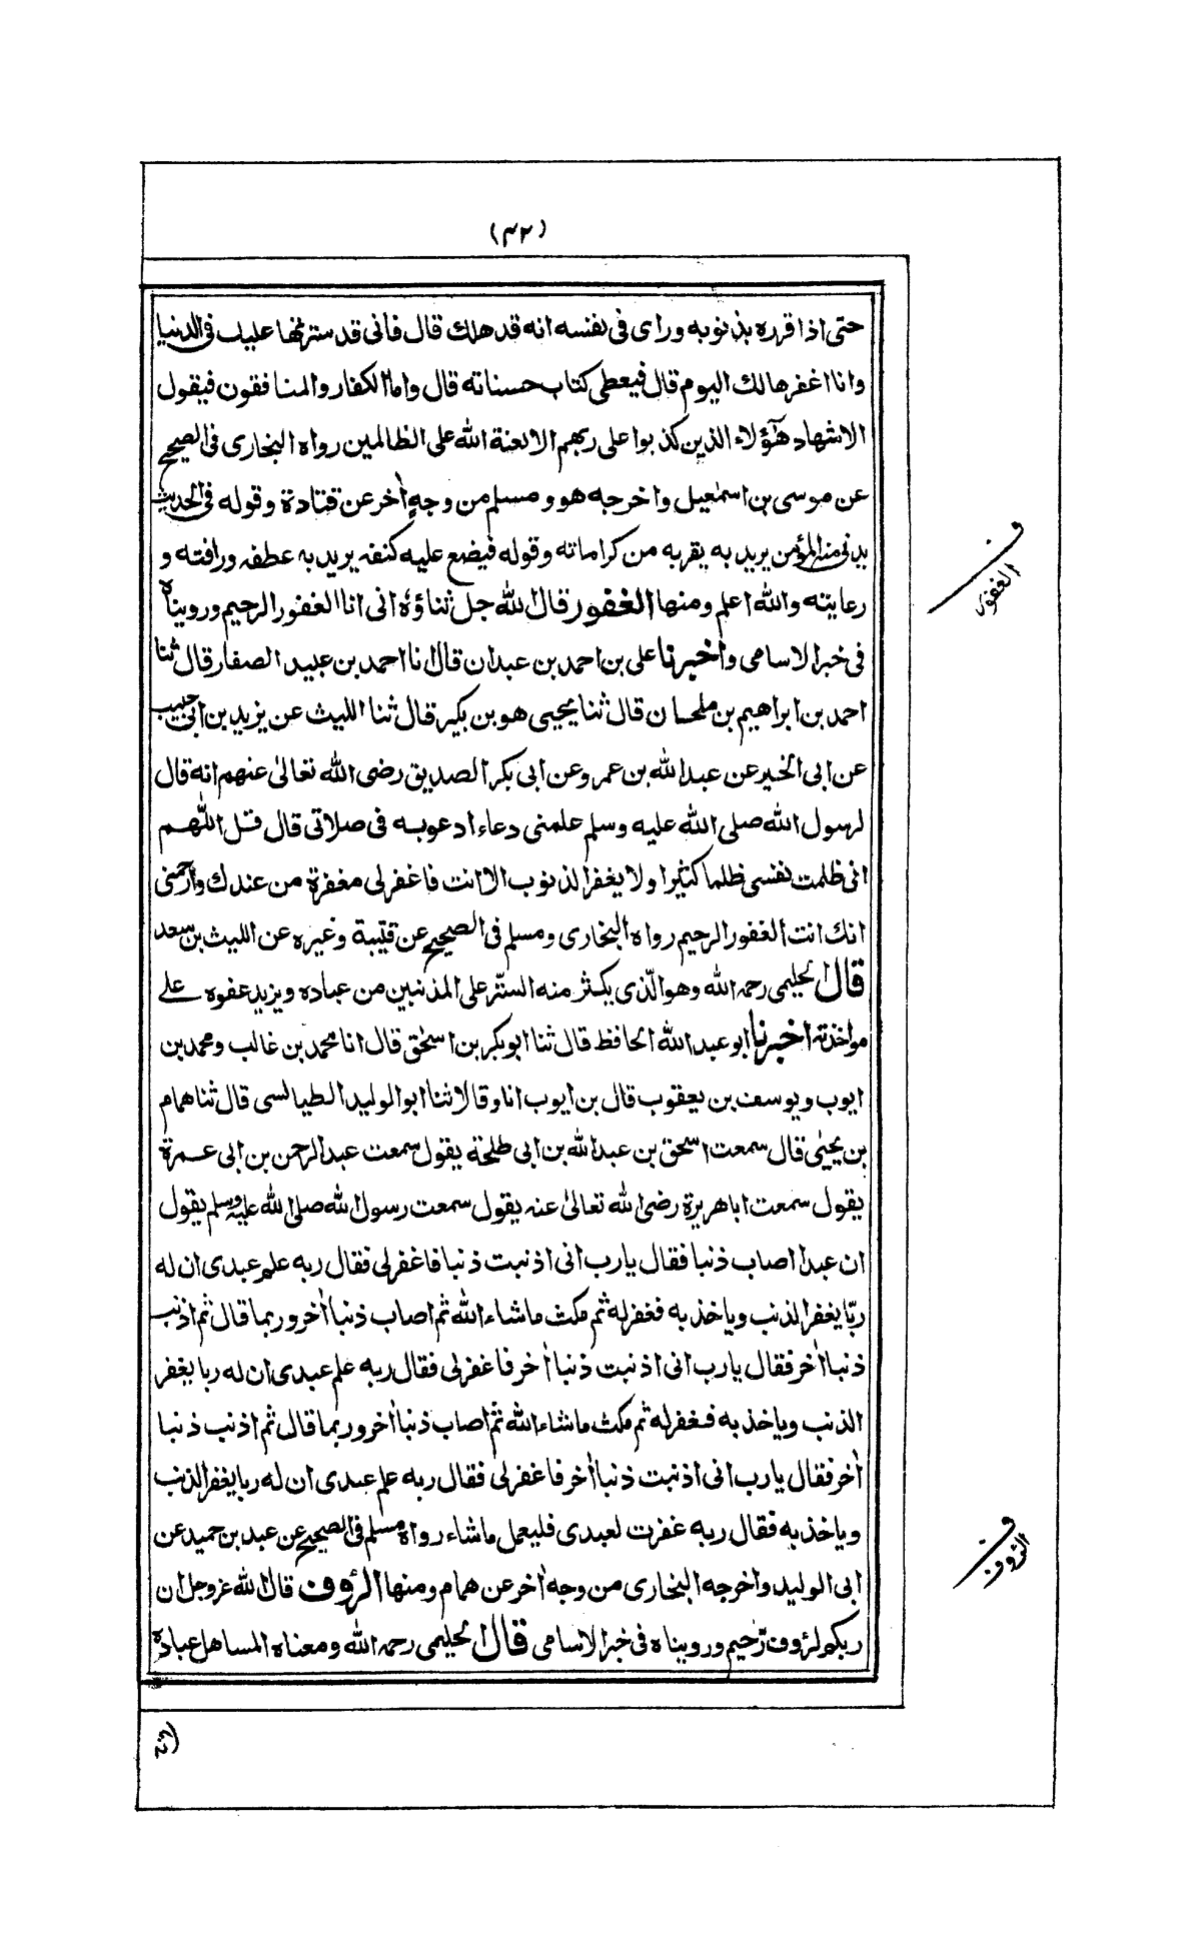 (۴۲)
حتى اذا قرره بذنوبه وراى فى نفسه انه قد هلك قال فانى قد سترتها عليك فى الدنيا
وانا اغفرها لك اليوم قال فيعطى كتاب حسناته قال واما الكفار والمنافقون فيقول
الاشهاد هٓؤلاء الذين كذبوا على ربهم الا لعنة الله على الظالمين رواه البخارى فى الصحيح
عن موسى بن اسمٰعيل واخرجه هو ومسلم من وجهٍ اٰخر عن قتادة وقوله فى الحديث
يدنى منه المؤمن يريد به يقربه من كراماته وقوله فيضع عليه كنفه يريد به عطفه ورافته و
رعايته والله اعلم ومنها الغفور قال الله جل ثناؤهٗ انى انا الغفور الرحيم وروينا ه
فى خبر الاسامى واخبرنا على بن احمد بن عبدان قال انا احمد بن عبيد الصفار قال ثنا
احمد بن ابراهيم بن ملحان قال ثنا يحيى هو بن بكير قال ثنا الليث عن يزيد بن ابى حبيب
عن ابى الخير عن عبد الله بن عمرو عن ابى بكر الصديق رضى الله تعالىٰ عنهم انه قال
لرسول الله صلى الله عليه وسلم علمنى دعاء ادعوبه فى صلاتى قال قل اللّٰهم
انى ظلمت نفسى ظلما كثيرا ولا يغفر الذنوب الا انت فاغفر لى مغفرة من عندك وارحمنى
انك انت الغفور الرحيم رواه البخارى ومسلم فى الصحيح عن قتيبة وغيره عن الليث بن سعد
قال الحليمى رحمه الله وهو الّذى يكثر منه الستر على المذنبين من عباده ويزيد عفوه على
مواخذته اخبرنا ابو عبد الله الحافظ قال ثنا ابو بكر بن اسحٰق قال انا محمد بن غالب ومحمد بن
ايوب ويوسف بن يعقوب قال بن ايوب انا وقالا ثنا ابو الوليد الطيالسى قال ثنا همام
بن يحيٰى قال سمعت اسحق بن عبد الله بن ابى طلحة يقول سمعت عبد الرحمن بن ابى عمرة
يقول سمعت ابا هريرة رضى الله تعالىٰ عنه يقول سمعت رسول الله صلى الله عليه وسلم يقول
ان عبدا اصاب ذنبا فقال يا رب انى اذنبت ذنبا فاغفر لى فقال ربه علم عبدى ان له
ربّا يغفر الذنب وياخذ به فغفر له ثم مكث ما شاء الله ثم اصاب ذنبا اٰخر وربما قال ثم اذنب
ذنبا اٰخر فقال يا رب انى اذنبت ذنبا اٰخر فاغفر لى فقال ربه علم عبدى ان له ربا يغفر
الذنب وياخذ به فغفر له ثم مكث ما شاء الله ثم اصاب ذنبا اٰخر وربما قال ثم اذنب ذنبا
اٰخر فقال يا رب انى اذنبت ذنبا اٰخر فاغفر لى فقال ربه علم عبدى ان له ربا يغفر الذنب
وياخذ به فقال ربه غفرت لعبدى فليعمل ما شاء رواه مسلم فى الصحيح عن عبد بن حميد عن
ابى الوليد واخرجه البخارى من وجه اٰخر عن همام ومنها الرؤوف قال الله عزوجل ان
ربكم لرؤوف رّحيم وروينا ه فى خبر الاسامى قال الحليمى رحمه الله ومعناه المساهل عباده
ف
الغفور
ف
الرؤوف